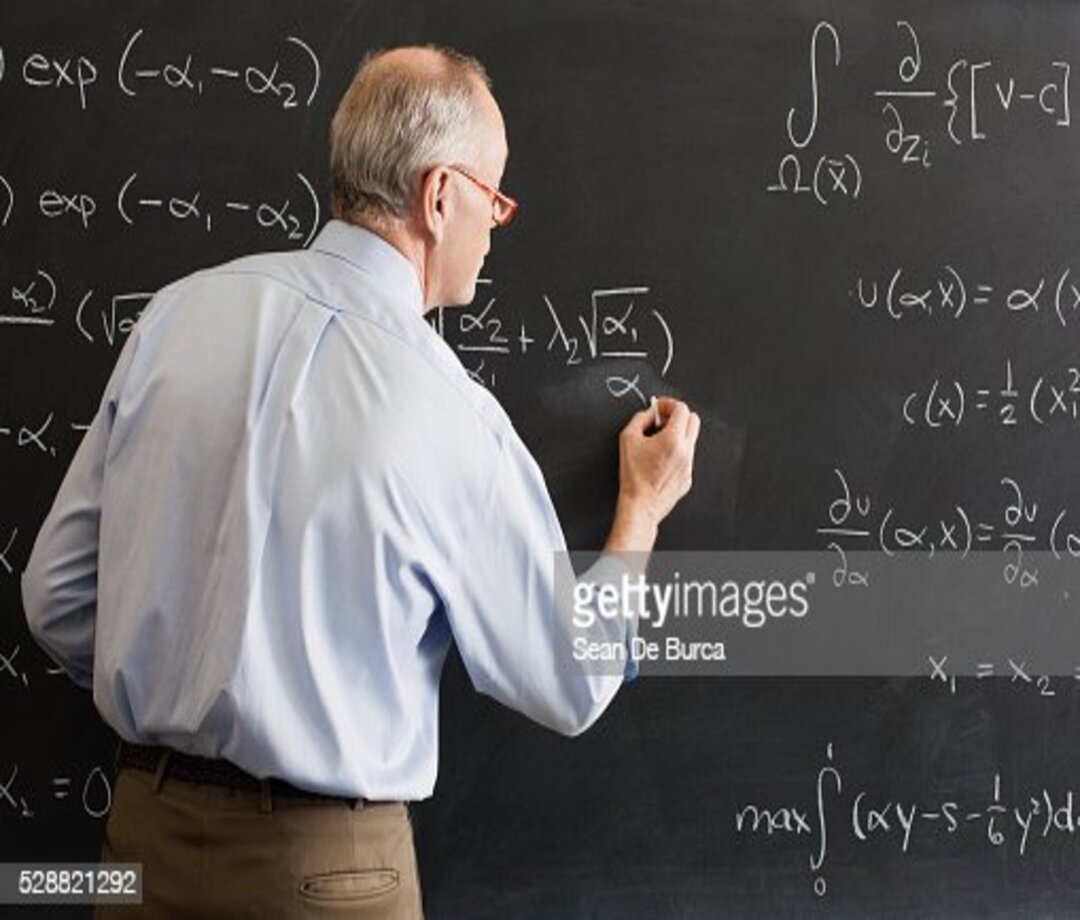 ) exp (-α₁-α₂)
) exp (-α₁-α₂)
α₂) (√α
√α₂/α₁ + λ₂√α₁/α )
-α₁ -
x₁ -
x₂ = 0
∫Ω(x̄) ∂/∂zᵢ {[v-c]
u(α,x) = α(x
c(x) = 1/2 (x₁²
∂u/∂α (α,x) = ∂u/∂α (α
x₁ = x₂ =
max ∫₀¹ (αy-s-1/6 y²)d
gettyimages®
Sean De Burca
528821292